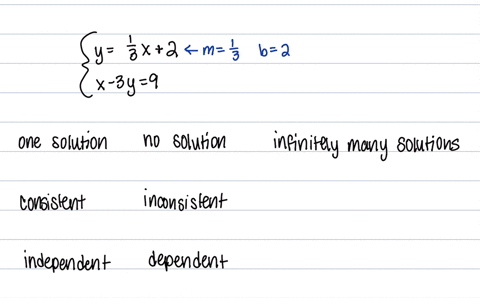 y = 1/3 x + 2 ← m = 1/3 b = 2
x - 3y = 9
one solution no solution infinitely many solutions
consistent inconsistent
independent dependent